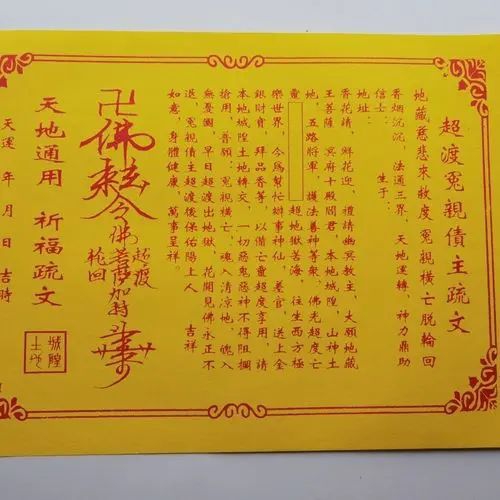 超渡冤親債主疏文
地藏慈悲來救度冤親橫亡脫輪回
香烟沉沉,法通三界,天地運轉,神力鼎助
信士: 生于:
地址:
香花請,鮮花迎,禮請幽冥教主,大願地藏
王菩薩,冥府十殿閻君,本地城隍,山神土
地,五路將軍,護法善神等衆,佛光超度亡
靈 超地獄苦海,往生西方極
樂世界,今爲幫忙辦事神仙,善官,送上金
銀財寶,拜品香等,以備亡靈超度享用,請
本地城隍土地轉交,一切惡鬼惡神不得阻攔
搶用,善願:冤親橫亡,魂入清凉地,魄入
無憂園,早日超渡出地獄,花開見佛永正不
退,冤親債主超渡後保佑陽上人 吉祥
如意,身體健康,萬事呈祥。
超渡
卍佛敕令佛菩薩加持
輪回
天地通用 祈福疏文
城隍
土地
天運 年 月 日 吉時